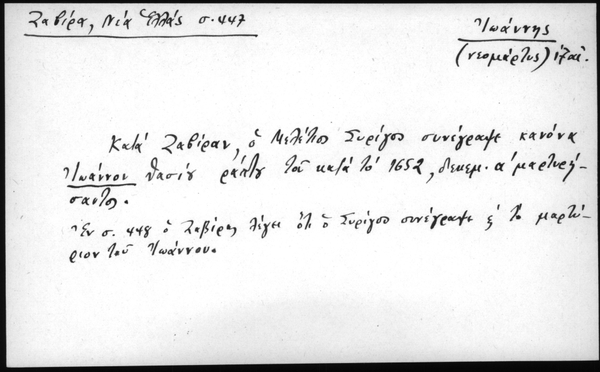 Ζαβίρα, Νέα Ἑλλάς σ. 447
Ἰωάννης
(νεομάρτυς)
Κατά Ζαβίραν, ὁ Μελέτιος Συρίγος συνέγραψε κανόνα
Ἰωάννου Θασίου ράπτου τοῦ κατά τό 1652, δεκεμ. α' μαρτυρή-
σαντος.
Ἐν σ. 448 ὁ Ζαβίρας λέγει ὅτι ὁ Συρίγος συνέγραψε ἐ τό μαρτύ-
ριον τοῦ Ἰωάννου.